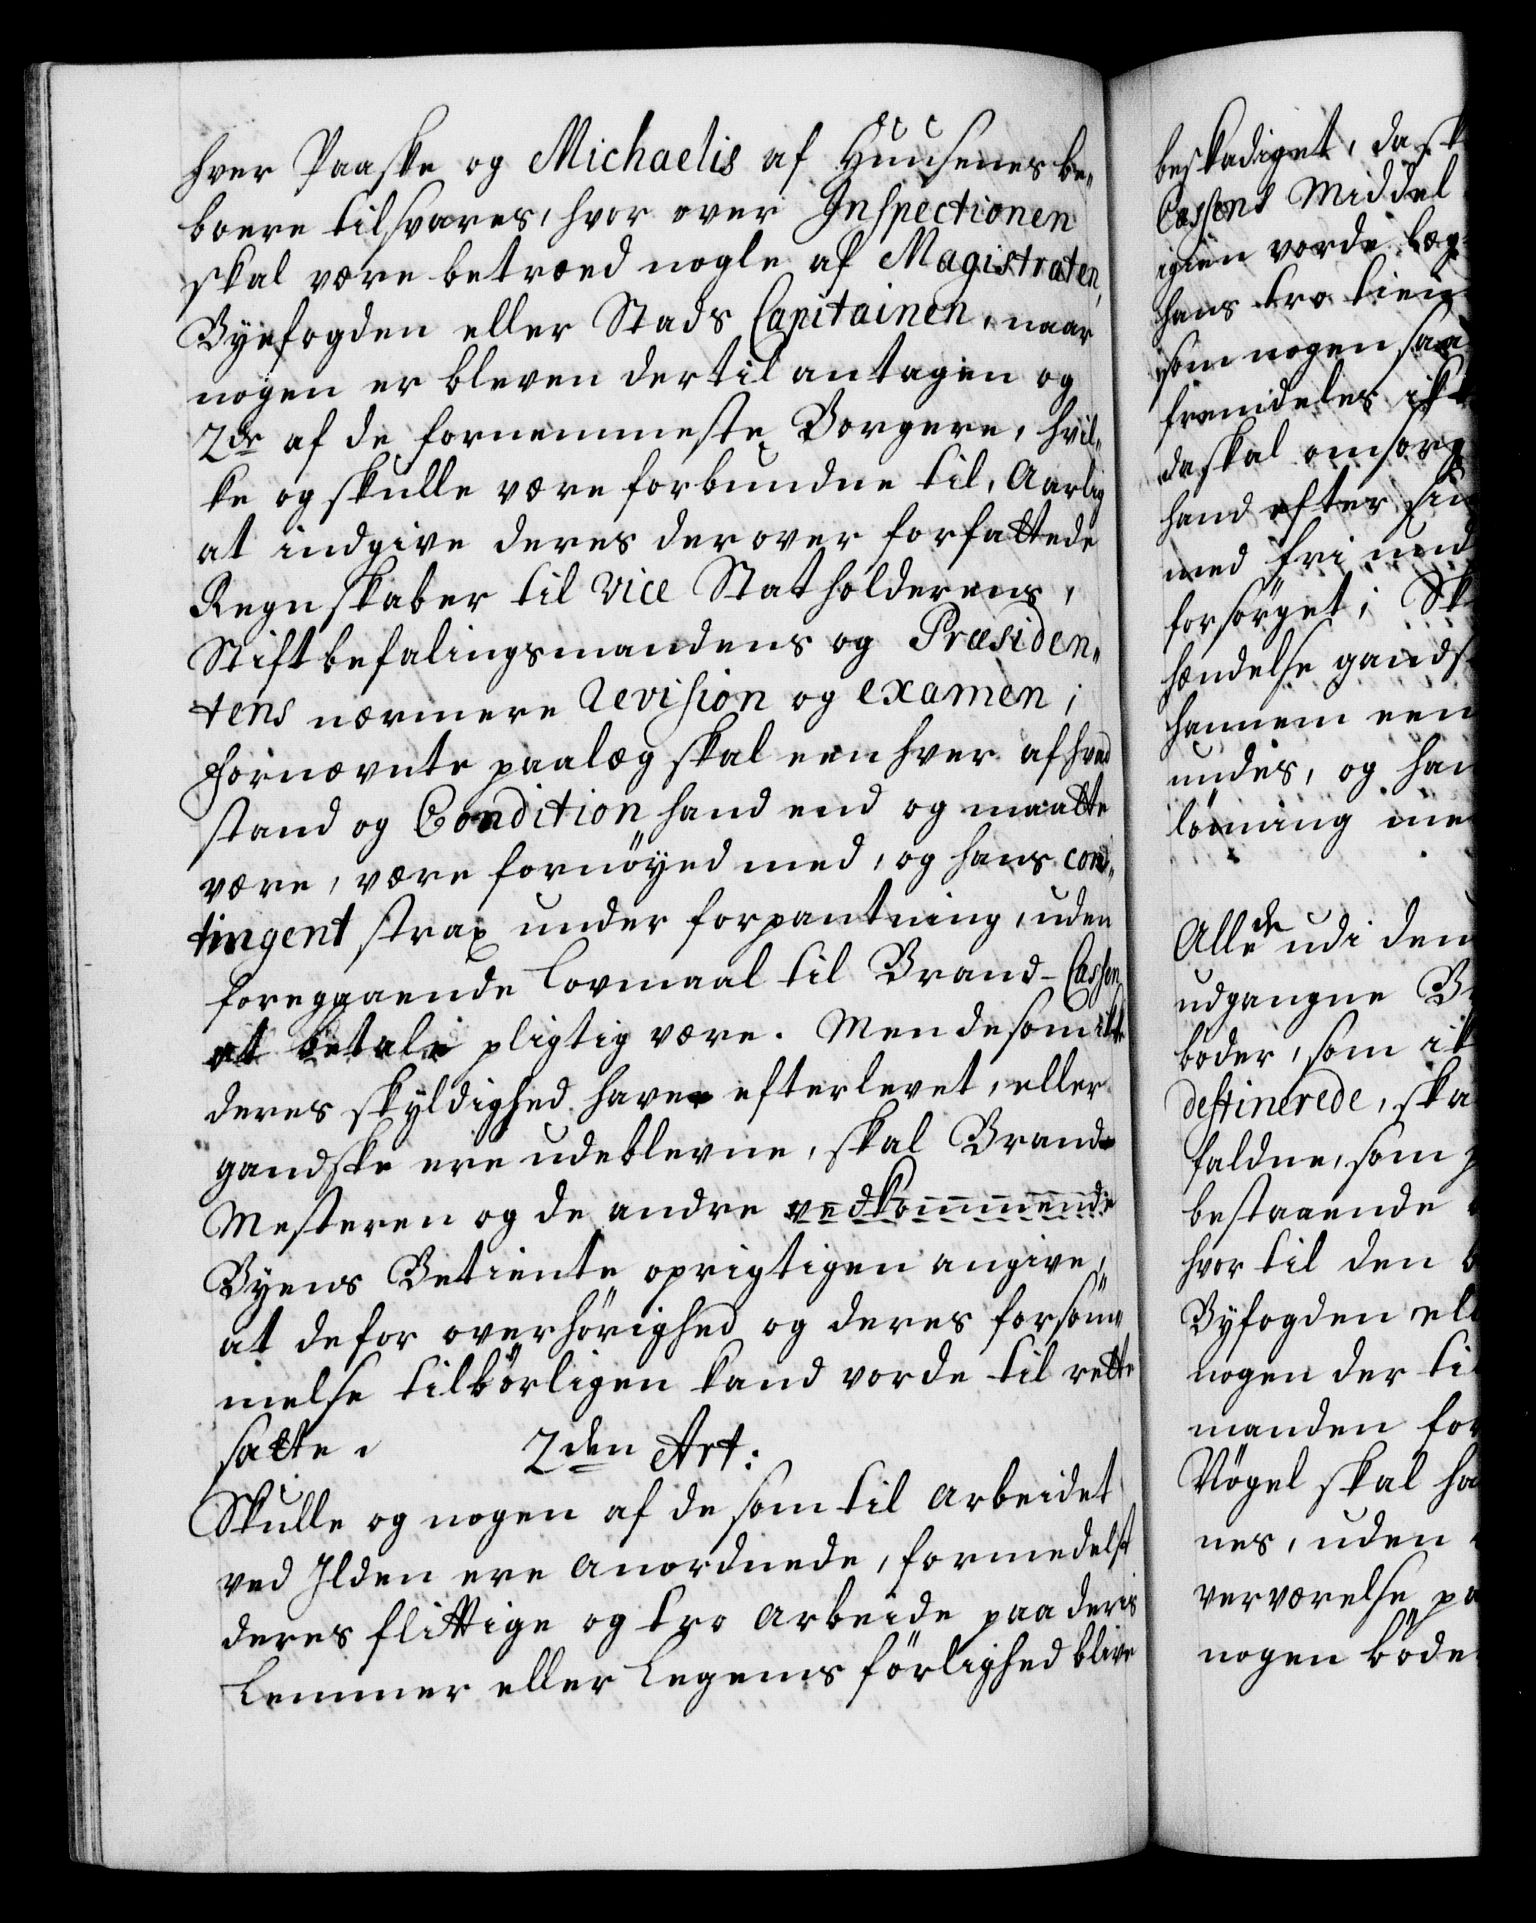 hver Paaske og Michaelis af Huusenes be„
boere tilsvares, hvor over Inspectionen
skal være betroed nogle af Magistraten,
Byefogden eller Stads Capitainen, naar
nogen er bleven dertil antagen og
2de af de fornemmeste Borgere, hvil„
ke og skulle være forbundne til, Aarlig
at indgive deres derover forfattede
Regnskaber til Vice Statholderens,
Stiftbefalingsmandens og Præsiden„
tens nærmere Revision og examen;
Fornævnte paalæg skal een hver af hvad
stand og Condition hand end og maatte
være, være fornöyed med, og hans con„
tingent strax under forpantning, uden
foreggaaende Lovmaal til Brand-Cassen
at betale pligtig være. Men de som ikke
deres skyldighed have efterlevet, eller
gandske ere udeblevne, skal Brand
Mesteren og de andre vedkommende
Byens Betiente oprigtigen angive,
at de for overhörighed og deres forsöm„
melse tilbörligen kand vorde til rette
satte.
2den Art:
Skulle og nogen af de som til Arbeidet
ved Ilden ere Anordnede, formedelst
deres flittige og tro Arbeide paa deris
Lemmer eller Legems förlighed blive
beskadiget, da sk
Cassens Middel
igien vorde læg
hans tro tien
som nogen saa
fremdeles ikk
da skal omsorg
hand efter sin
med fri und
forsörget; Sk
hændelse gands
hannem een
undes, og han
lönning me
Alle de udi den
udgangne Br
böder, som ik
destinerede, ska
faldne, som p
bestaaende
hvor til den b
Byfogden ell
nogen der til
manden for
Nögel skal ha
nes, uden
verværelse pa
nogen böde